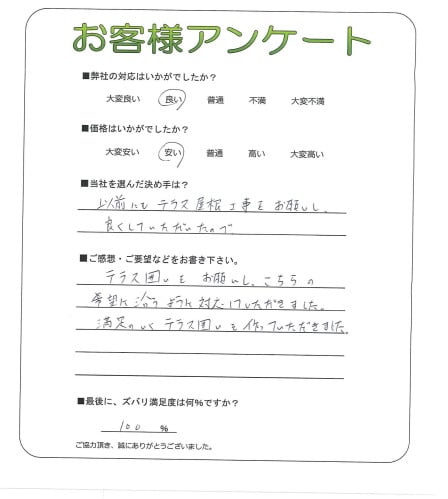 お客様アンケート
■弊社の対応はいかがでしたか？
大変良い 良い 普通 不満 大変不満
■価格はいかがでしたか？
大変安い 安い 普通 高い 大変高い
■当社を選んだ決め手は？
以前にも テラス屋根工事をお願いし、
良くしていただいたので
■ご感想・ご要望などをお書き下さい。
テラス囲いを お願いし、こちらの
希望に沿うように対応していただきました。
満足のいくテラス囲いを作っていただきました。
■最後に、ズバリ満足度は何%ですか？
100 %
ご協力頂き、誠にありがとうございました。